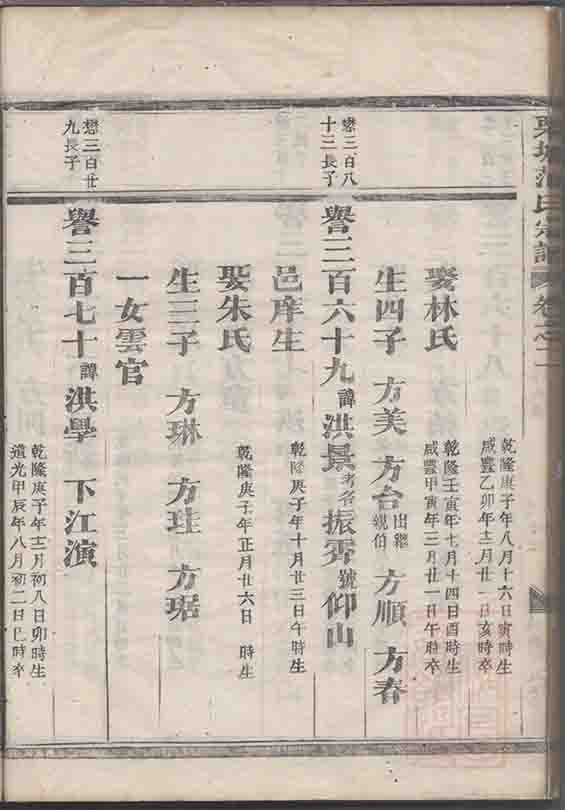 氏宗譜 卷之二
乾隆庚子年八月十六日寅時生
咸豐乙卯年十二月廿一日亥時卒
娶林氏
乾隆壬寅年七月十四日酉時生
咸豐甲寅年三月廿一日午時卒
生四子 方美 方台 出繼親伯 方順 方春
懋三百八十三長子
譽三百六十九諱洪景考名振霽號仰山
乾隆庚子年十月廿三日午時生
邑庠生
娶朱氏
乾隆庚子年正月廿六日 時生
生三子 方琳 方珪 方琚
一女雲官
懋三百廿九長子
譽三百七十諱洪學 下江演
乾隆庚子年十二月初八日卯時生
道光甲辰年八月初二日巳時卒